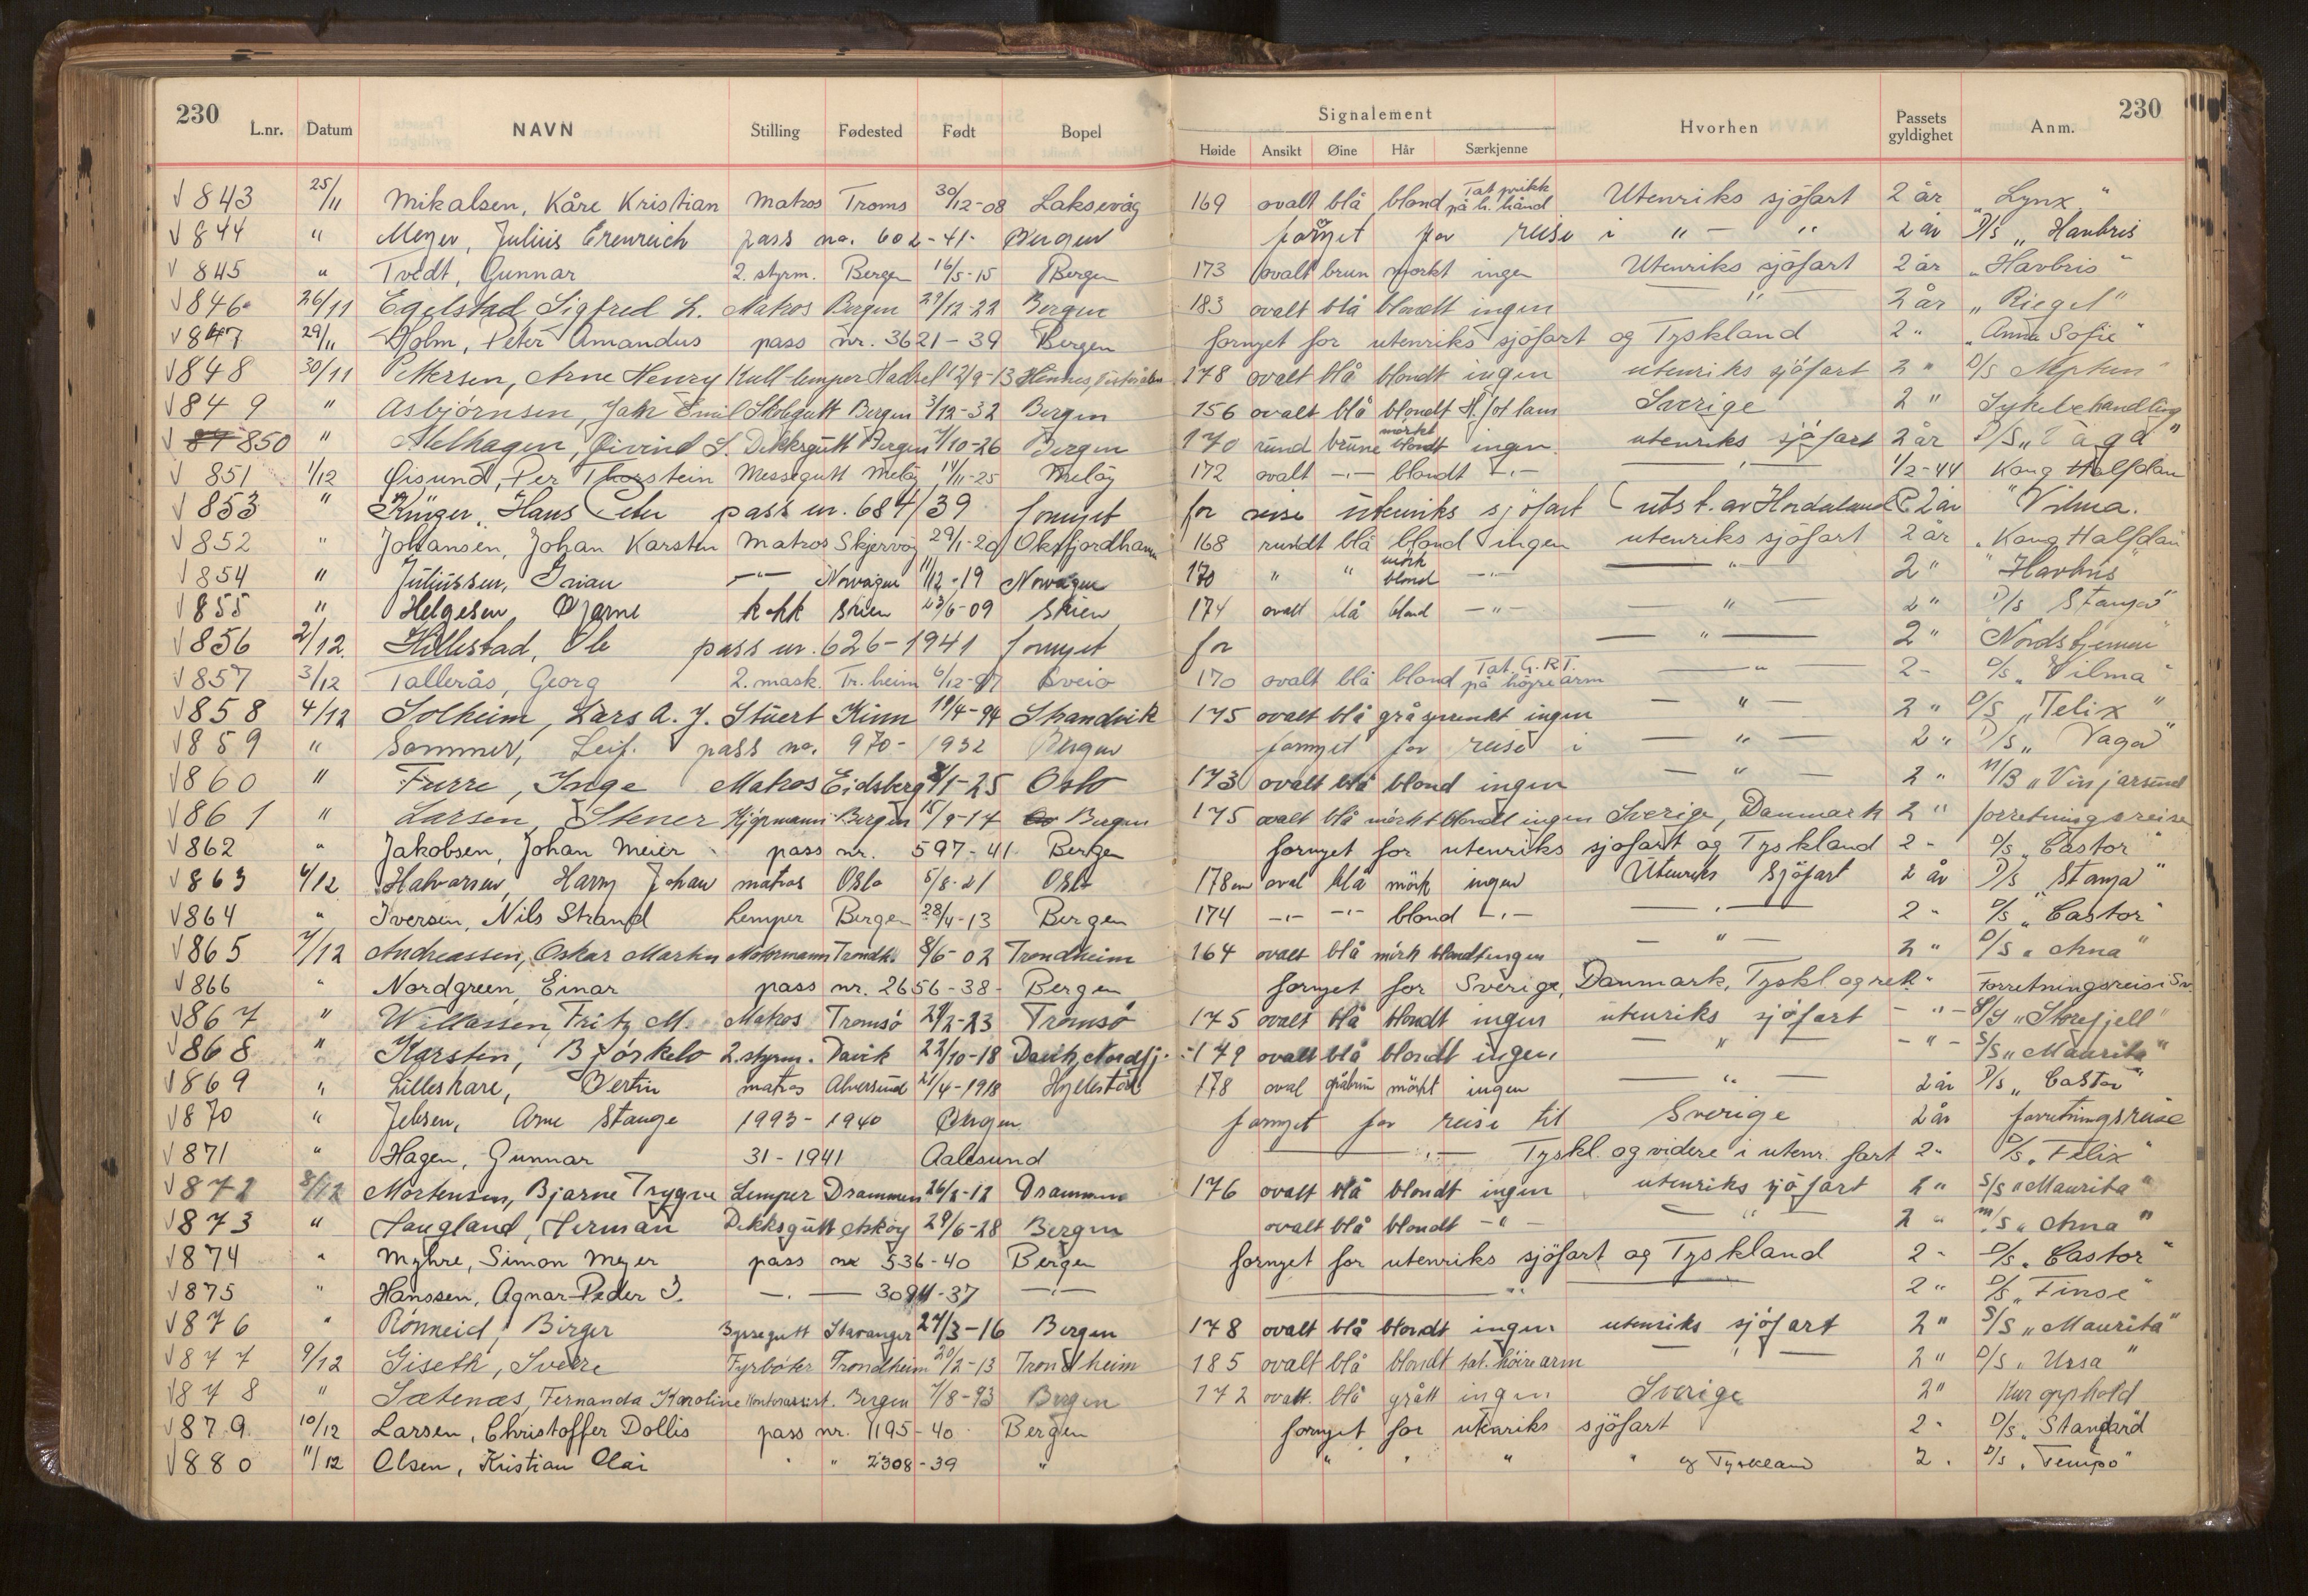 230 230
Signalement
L.nr. Datum NAVN Stilling Fødested Født Bopel Høide Ansikt Øine Hår Særkjenne Hvorhen Passets gyldighet Anm.
√ 843 25/11 Mikalsen, Kåre Kristian Matros Troms 30/12-08 Laksevåg 169 ovalt blå blond Tat. prikk på h. hånd Utenriks sjöfart 2 år "Lynx"
√ 844 " Meyer, Julius Erenreich pass no. 602-41- Bergen fornyet for reise i " - " 2 år D/s "Havbris
√ 845 " Tvedt, Gunnar 2. styrm. Bergen 16/5-15 Bergen 173 ovalt brun mørkt ingen Utenriks sjöfart 2 år "Havbris"
√ 846 26/11 Egelstad Sigfred L. Matros Bergen 29/12-22 Bergen 183 ovalt blå blondt ingen — " — 2 år "Riegel"
√ 847 29/11 Holm, Peter Amandus pass nr. 3621-39 Bergen fornyet for utenriks sjöfart og Tyskland 2 " "Anna Sofie"
√ 848 30/11 Pettersen, Arne Henry Kull-lemper Hadsel 12/9-13 Hennes, Vesterålen 178 ovalt blå blondt ingen utenriks sjöfart 2 " D/s Neptun"
√ 849 " Asbjörnsen, Jan Emil Skolegutt Bergen 3/12-32 Bergen 156 ovalt blå blondt H. fot lam Sverige 2 " Sykebehandling
√ 850 " Melhagen, Øivind S. Dekksgutt Bergen 7/10-26 Bergen 170 rund brune mörkt blondt ingen. utenriks sjöfart 2 år D/S "Vaga"
√ 851 1/12 Øisund, Per Thorstein Messegutt Meløy 11/11-25 Meløy 172 ovalt -"- blondt -"- — " — 1/2-44 Kong Halfdan
√ 853 " Krüger, Hans Peter pass nr. 684/39 fornyet for reise utenriks sjöfart (utst. av Hordaland P. 2 år "Vilma.
√ 852 " Johansen, Johan Karsten Matros Skjervøy 29/1-20 Oksfjordhamn 168 rundt blå blond ingen utenriks sjöfart 2 år "Kong Halfdan
√ 854 " Juliussen, Brian -"- Norvagen 11/12-19 Norvagen 170 " " mörk blond -"- — " — 2 " "Havbris"
√ 855 " Helgesen Bjarne kokk Skien 23/6-09 Skien 174 ovalt blå blond -"- — " — 2 " D/s Stanja"
√ 856 2/12. Hillestad, Ole pass nr. 626-1941 fornyet for — " — 2 " "Nordstjernen"
√ 857 3/12 Tallerås, Georg 2. mask. Tr.heim 6/12-97 Sveio 170 ovalt blå blond Tat. G.R.T. på höjre arm — " — 2 - D/s "Vilma"
√ 858 4/12 Solheim, Lars A. J. Stuert Kinn 19/4-94 Strandvik 175 ovalt blå gråsprenkt ingen — " — 2 " D/S "Felix"
√ 859 " Sommer, Leif. pass no. 970-1932 Bergen fornyet for reise i — " — 2 " D/s "Vaga"
√ 860 " Furre, Inge Matros Eidsberg 8/1-25 Oslo 173 ovalt blå blond ingen — " — 2 " M/B "Vinjarsund
√ 861 " Larsen, Stener Kjøpmann Bergen 15/9-14 Bergen 175 ovalt blå mörkt blondt ingen Sverige, Danmark 2 " forretningsreise
√ 862 " Jakobsen, Johan Meier pass nr. 597-41. Bergen fornyet for utenriks sjöfart og Tyskland 2 - D/s "Castor"
√ 863 6/12 Halvorsen, Harry Johan matros Oslo 5/8-21 Oslo 178 cm oval blå mörk ingen Utenriks Sjöfart 2 år D/s "Stanja"
√ 864 " Iversen, Nils Strand Lemper Bergen 28/4-13 Bergen 174 -"- -"- blond -"- — " — 2 - D/s "Castor"
√ 865 7/12 Andreassen, Oskar Martin Motormann Trondh. 8/6-02 Trondheim 164 ovalt blå mörk blondt ingen — " — 2 " D/S "Arna"
√ 866 " Nordgreen, Einar pass nr. 2656-38- Bergen fornyet for Sverige, Danmark, Tyskl. og ret. " Forretningsreise i Sv.
√ 867 " Willassen Fritz M. Matros Tromsö 29/2-23 Tromsö 175 ovalt blå blondt ingen utenriks sjöfart - " - "Storefjell"
√ 868 " Karsten, Bjørkelo 2. styrm. Davik 22/10-18 Davik, Nordfj. 179 ovalt blå blondt ingen — " — - " - S/S "Maurita"
√ 869 " Lilleskare, Bertin matros Alversund 21/4-1918 Hjellestad 178 oval gråbrun mörkt ingen — " — 2 år D/s "Castor"
√ 870 " Jebsen, Arne Stange 1993-1940 Bergen. fornyet for reise til Sverige 2 år forretningsreise
√ 871 " Hagen, Gunnar 31-1941 Aalesund — " — Tyskl. og videre i utenr. fart 2 - D/s "Felix"
√ 872 8/12 Mortensen, Bjarne Trygve Lemper Drammen 26/2-12 Drammen 176 ovalt blå blondt ingen utenriks sjöfart 2 " S/S "Maurita"
√ 873 " Haugland, Herman Dekksgutt Askøy 29/6-28 Bergen ovalt blå blondt -"- — " — 2 " M/S "Arna"
√ 874 " Myhre, Simon Meyer pass nr 536-40 Bergen fornyet for utenriks sjöfart og Tyskland 2 - D/s. Castor"
√ 875 " Hanssen, Agnar Peder I. — " — 3094-37 — " — — " — 2 " D/s "Finse"
√ 876 " Rönneid, Birger Byssegutt Stavanger 27/3-16 Bergen 178 ovalt blå blondt ingen utenriks sjöfart 2 " S/S "Maurita"
√ 877 9/12 Giseth, Sverre Fyrböter Trondheim 20/2-13 Trondheim 185 ovalt blå blondt tat. höire arm — " — 2 " D/s "Ursa"
√ 878 " Sætenæs, Fernanda Karoline Kontorassist. Bergen 7/8-93 Bergen 172 ovalt. blå grått ingen Sverige 2 " Kuropphold
√ 879. 10/12 Larsen, Christoffer Dollis pass nr. 1195-40 Bergen fornyet for utenriks sjöfart 2 - D/s "Standard
√ 880 11/12 Olsen, Kristian Olai " " 2308-39 " " " " " og Tyskland 2 . D/s "Tempo"